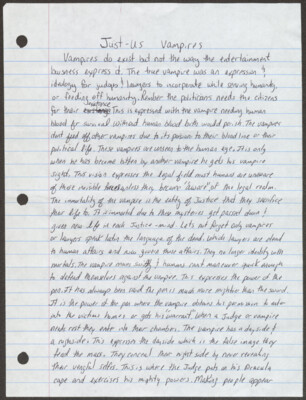 Just-Us Vampires
Vampires do exist but not the way the entertainment
business express it. The true vampire was an expression /
ideology for judges / lawyers to incorporate while serving humanity
or feeding off humanity. Render the politicians needs the citizens
for their existence. This is expressed with the vampire needing human
blood for survival. Without human blood he would perish. The vampire
dont feed off other vampires due to its poison to their blood line or their
political life. These vampires are unseen to the human eye. It is only
when he has become bitten by another vampire he gets his vampire
sight. This vision expresses the legal field most humans are unaware
of these invisible forces unless they become aware of the legal realm.
The immortality of this vampire is the entity of Justice that they sacrifice
their life to. It is immortal due to these mysteries get passed down /
given new life in each Justice-mind. Lets not forget only vampires
or lawyers speak latin the language of the dead. Which lawyers are dead
to human affairs and now govern those affairs. They no longer identify with
mortals. The vampire moves swiftly / humans cant move over quick enough
to defend themselves against the vampire. This expresses the power of the
pen. It has always been said the pen is much more mightier than the sword.
It is the power of the pen where the vampire obtains his permission to enter
into the victims homes or gets his warrant when a Judge or vampire
request they enter into their chambers. The vampire has a dayside &
a nightside. This expresses the dayside which is the false image they
feed the mass. They conceal their night side by never revealing
their vengeful selfs. This is where the Judge puts on his Dracula
cape and exercises his mighty powers. Making people appear